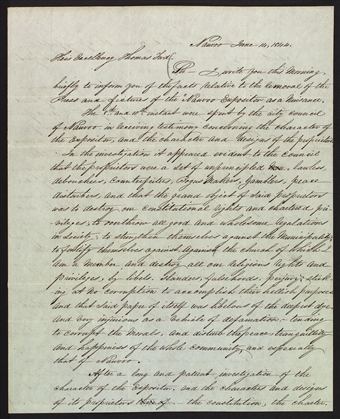 Nauvoo June 14, 1844.
His Excellency Thomas Ford,
Sir— I write you this morning
briefly to inform you of the facts relative to the removal of the
Press and fixtures of the "Nauvoo Expositor" as a nuisance.
The 8th and 10th instant were spent by the city council
of Nauvoo, in receiving testimony concerning the character of
the Expositor, and the character and designs of the proprietors.
In the investigation it appeared evident to the council
that the proprietors were a set of unprincipled men, lawless,
debouchees, counterfeiters, Bogus Makers, gamblers, peace
disturbers, and that the grand object of said proprietors
was to destroy our constitutional rights and chartered privi-
viliges; to overthrow all good and wholesome regulations
in society; to strengthen themselves against the municipality;
to fortify themselves against the church of which
I am a member, and destroy all our religious rights and
privileges, by libels, slanders, falsehoods, perjury & stick-
ing at no corruption to accomplish their hellish purposes.
and that said paper of itself was libelous of the deepest dye,
and very injurious as a vehicle of defamation,— tending
to corrupt the morals, and disturb the peace, tranquillity
and happiness of the whole community, and especially
that of Nauvoo.
After a long and patient investigation of the
character of the Expositor, and the characters and designs
of its proprietors, the constitution, the charter,